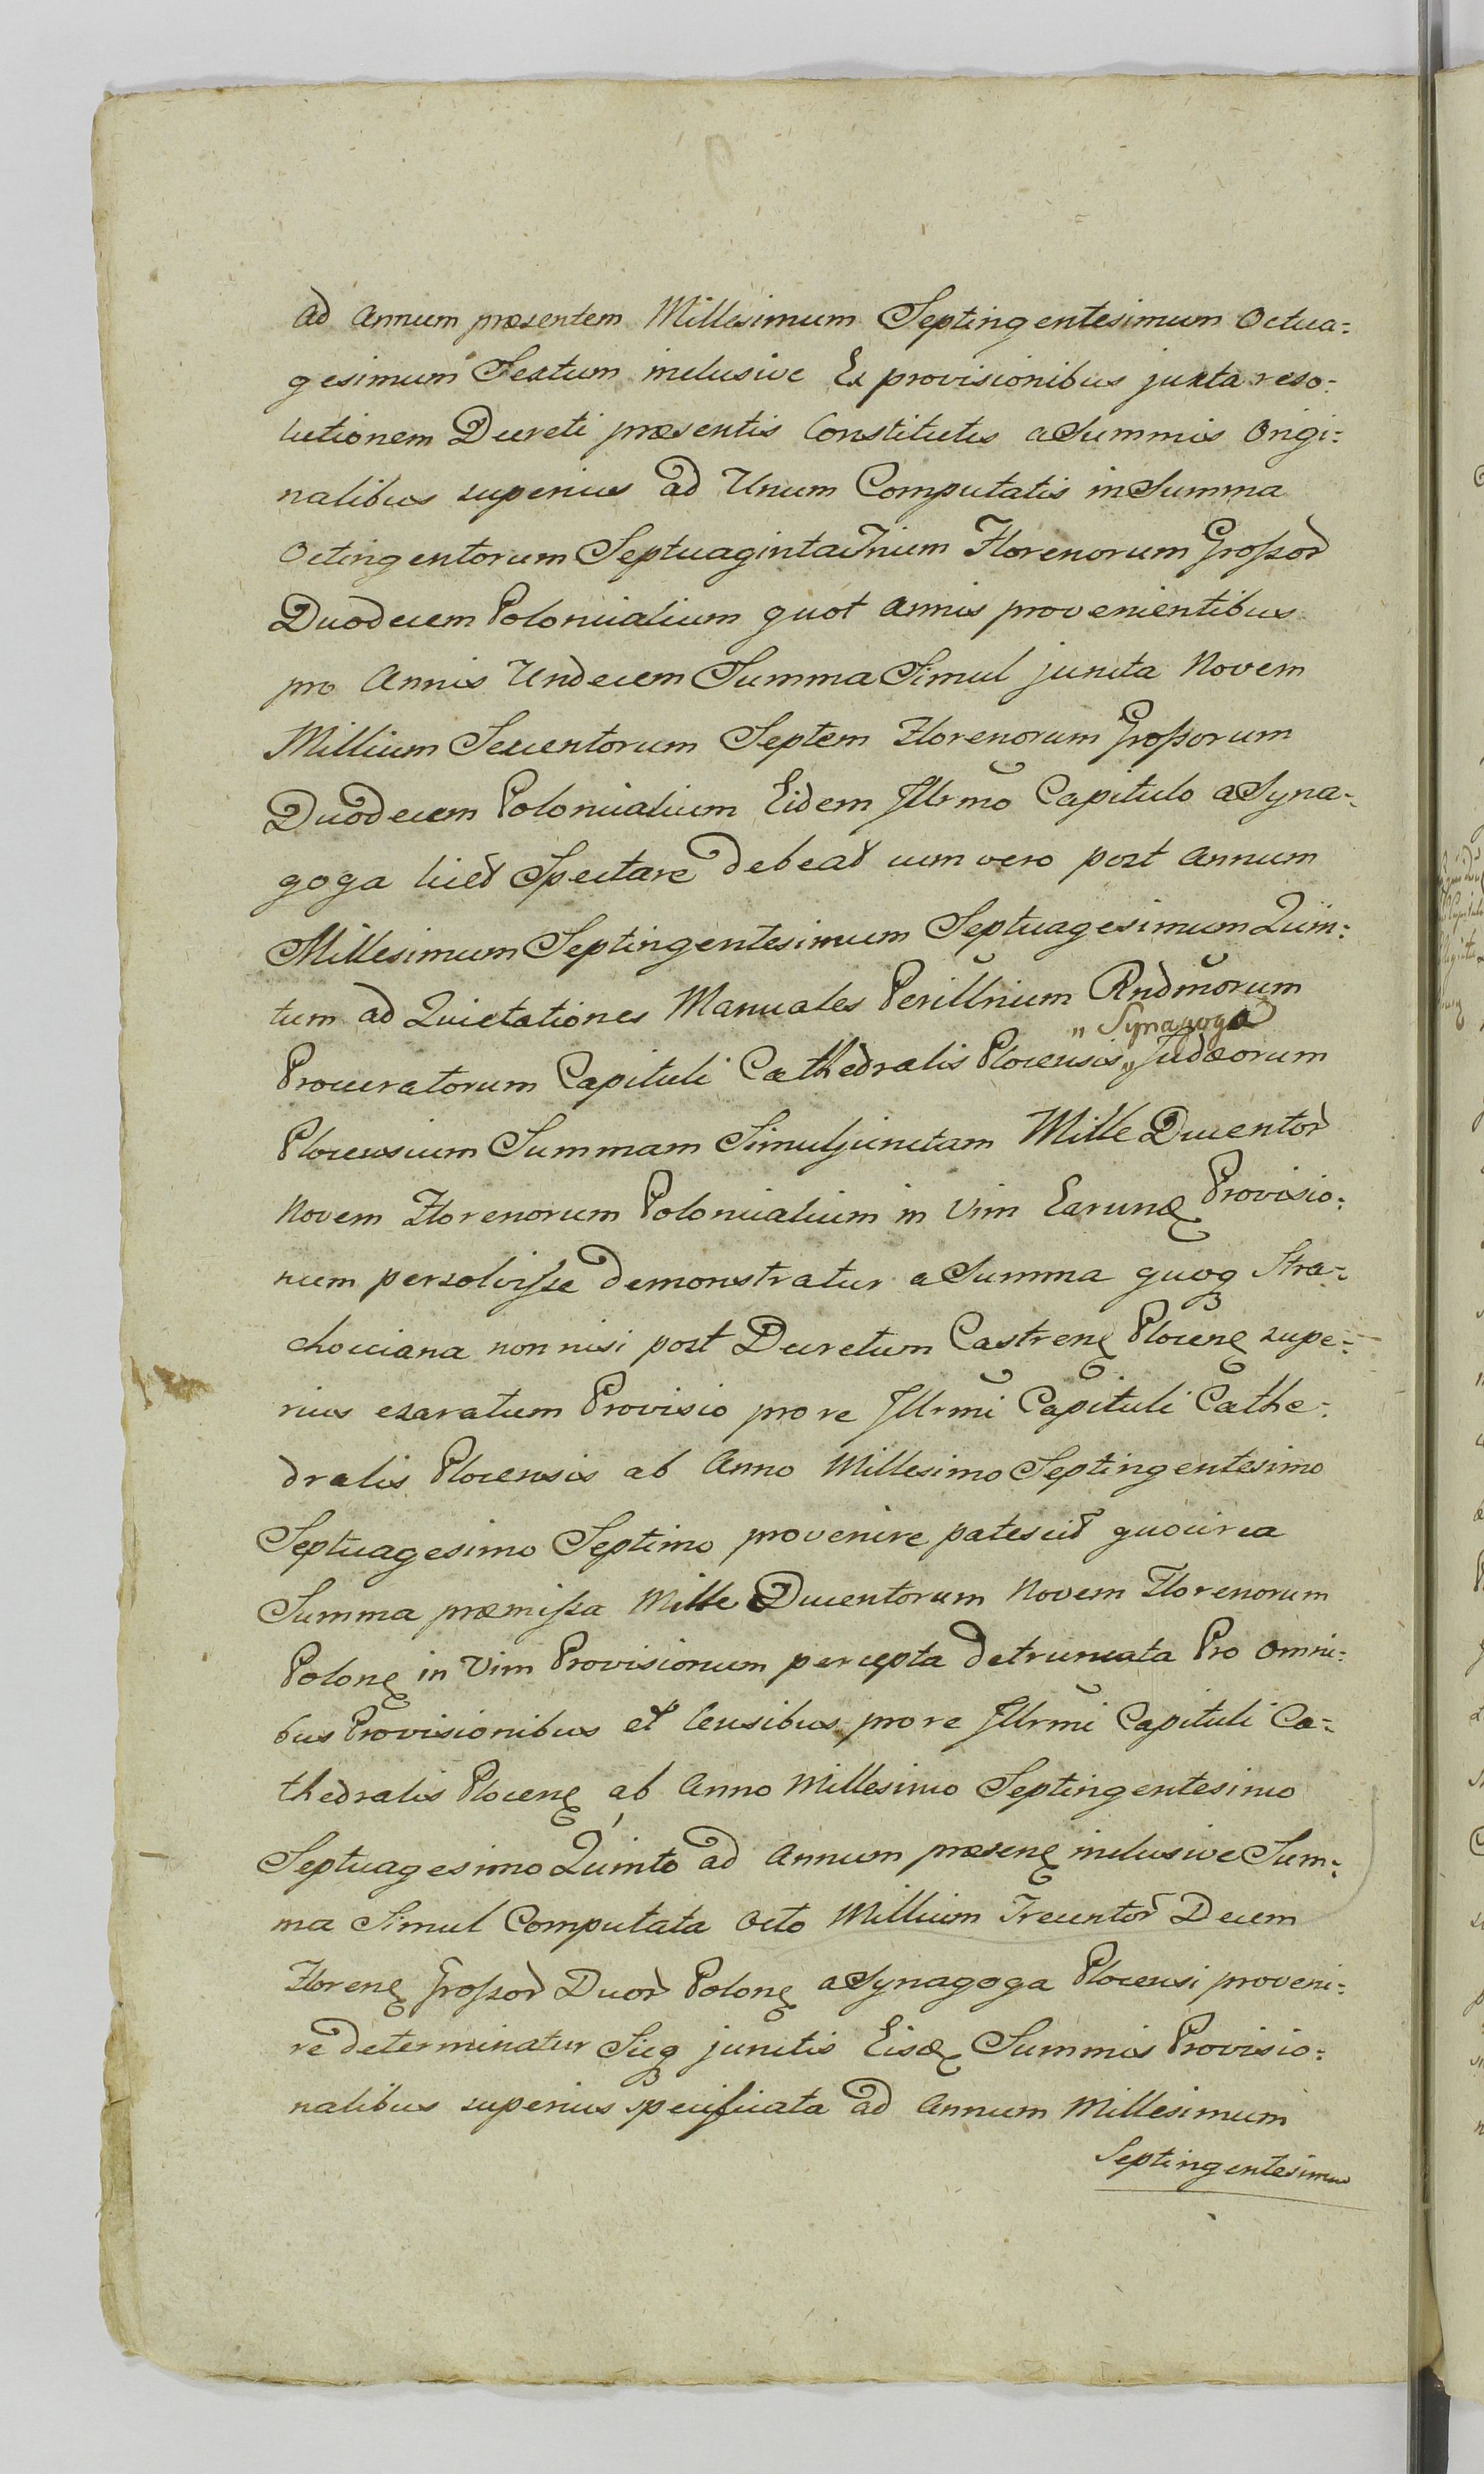 ad Annum præsentem Millesimum Septingentesimum Octua=
gesimum Sextum inclusive Ex provisionibus juxta reso=
lutionem Decreti præsentis Constitutis a Summis Origi=
nalibus superius ad Unum Computatis in Summa
Octingentorum Septuaginta Trium Florenorum Grossor
Duodecem Polonicalium quot Annis provenientibus
pro Annis Undecem Summa Simul juncta Novem
Millium Sexcentorum Septem Florenorum Grossorum
Duodecem Polonicalium Eidem Illrmo Capitulo a Syna=
goga licet Spectare debeat cum vero post Annum
Millesimum Septingentesimum Septuagesimum Quin=
tum ad Quietationes Manuales Perillrium Rndmorum
„ Synagoga
Procuratorum Capituli Cathedralis Plocensis „ Judæorum
Plocensium Summam Simul junctam Mille Ducentor
Novem Florenorum Polonicalium in Vim Earund Provisio=
num persolvisse demonstratur a Summa quoq Stra=
chociana non nisi post Decretum Castren Plocen supe=
rius exaratum Provisio pro re Illrmi Capituli Cathe=
dralis Plocensis ab Anno Millesimo Septingentesimo
Septuagesimo Septimo provenire patescit quocirca
Summa præmissa Mille Ducentorum Novem Florenorum
Polon in Vim Provisionum percepta detruncata Pro Omni=
bus Provisionibus et Censibus pro re Illrmi Capituli Ca=
thedralis Plocen ab Anno Millesimo Septingentesimo
Septuagesimo Quinto ad Annum præsen inclusive Sum=
ma Simul Computata Octo Millium Trecentor Decem
Floren Grossor Duor Polon a Synagoga Plocensi proveni=
re determinatur Sicq junctis Eisd Summis Provisio=
nalibus superius specificata ad Annum Millesimum
Septingentesimum